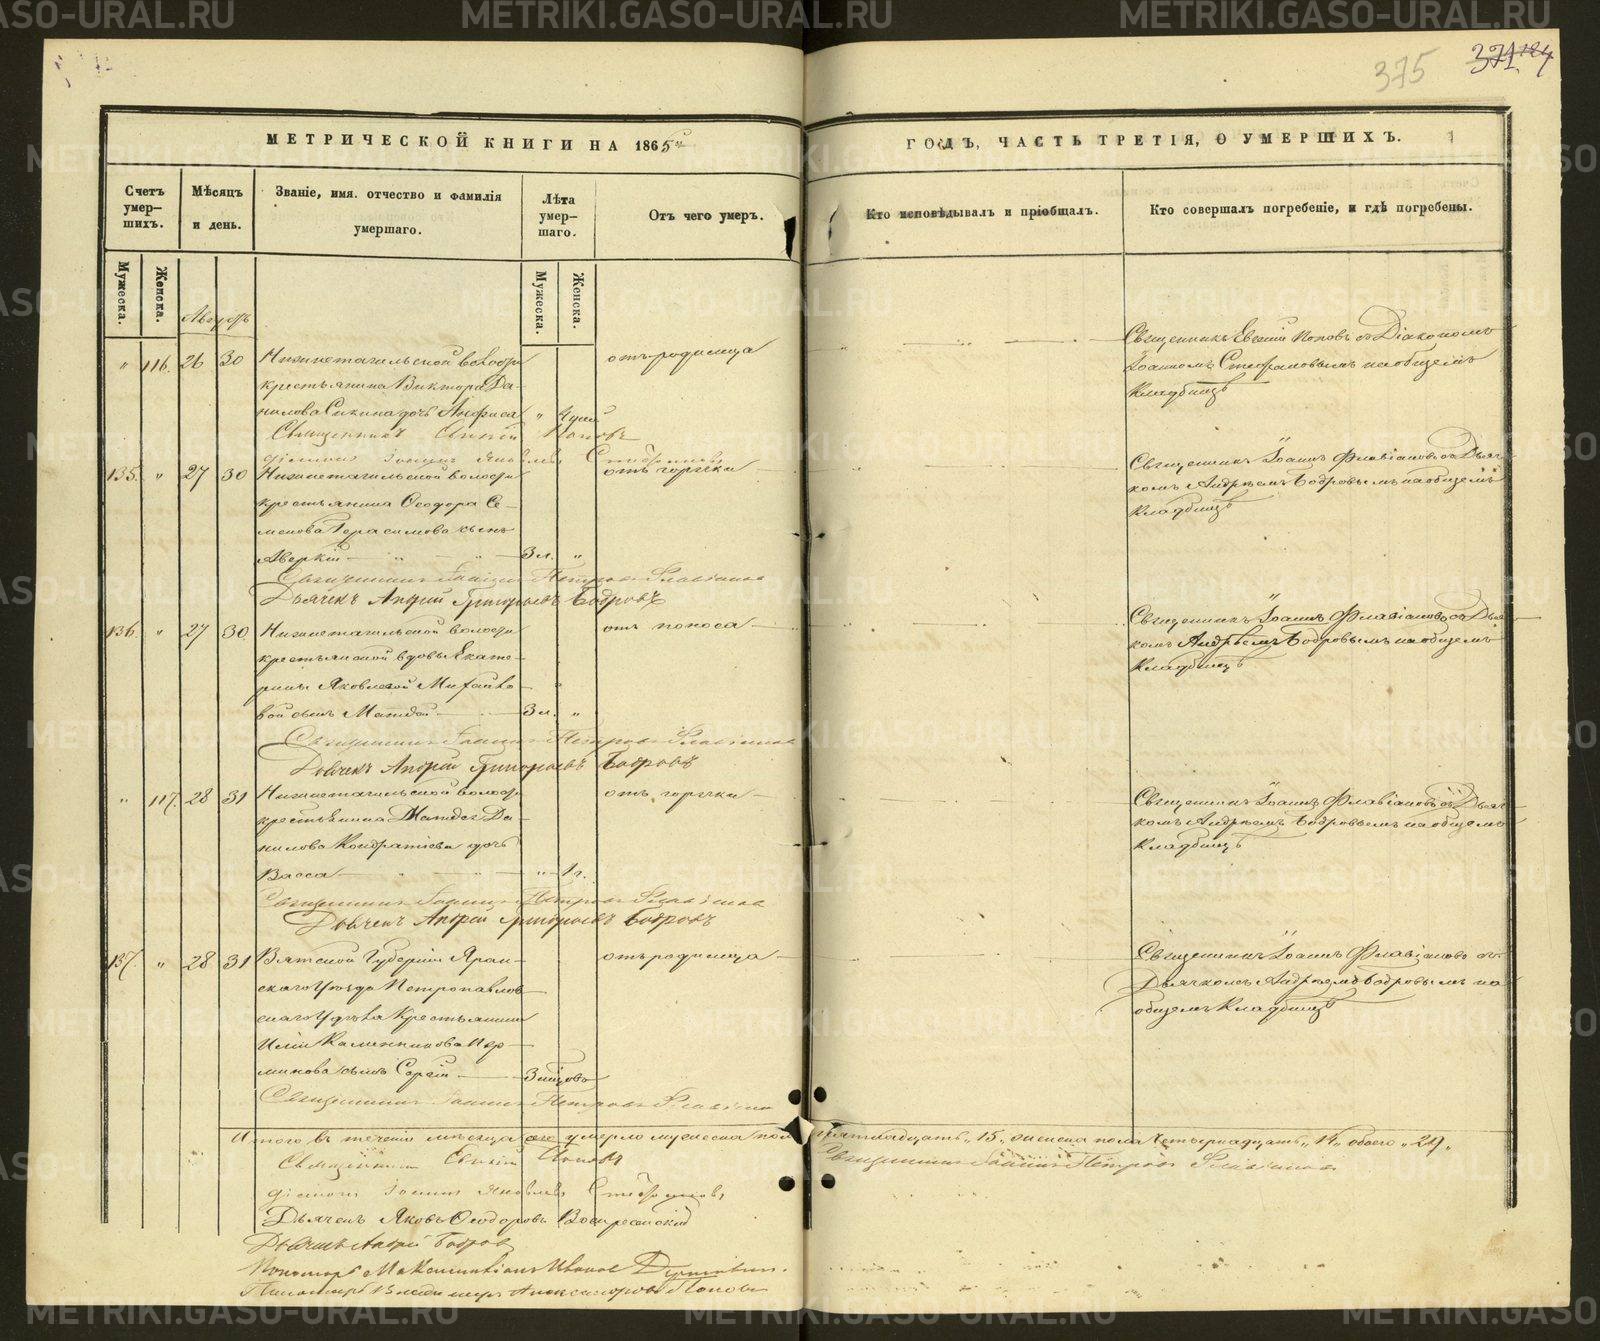 375
371.
МЕТРИЧЕСКОЙ КНИГИ НА 1865
ГОДЪ, ЧАСТЬ ТРЕТІЯ, О УМЕРШИХЪ.
Счетъ умер-шихъ.
Мѣсяцъ и день.
Званіе, имя, отчество и фамилія умершаго.
Лѣта умер-шаго.
Отъ чего умеръ.
Кто исповѣдывалъ и пріобщалъ.
Кто совершалъ погребеніе, и гдѣ погребены.
Мужеска.
Женска.
Мужеска.
Женска.
Августъ
" 116. 26 30 Нижнетагильской волости
крестьянина Виктора Да-
нилова дочь Анфиса " 4 дней
отъ родимца
Священникъ Евгеній Поповъ съ Діакономъ
Іоанномъ Стефановымъ на общемъ
кладбищѣ
Священникъ Евгеній Поповъ
діаконъ Іоаннъ Яковлевъ
135. " 27 30 Нижнетагильской волости
крестьянина Ѳеодора Се-
менова Герасимова сынъ
Аверкій 3 л. "
отъ горячки
Священникъ Іоаннъ Флавіановъ съ Дьяч-
комъ Андреемъ Бобровымъ на общемъ
кладбищѣ
Священникъ Іоаннъ Петровъ Флавіановъ
Дьячекъ Андрей Григорьевъ Бобровъ
136. " 27 30 Нижнетагильской волости
крестьянской вдовы Екате-
рины Яковлевой Михайло-
вой сынъ Матѳей 3 л. "
отъ поноса
Священникъ Іоаннъ Флавіановъ съ Дьяч-
комъ Андреемъ Бобровымъ на общемъ
кладбищѣ
Священникъ Іоаннъ Петровъ Флавіановъ
Дьячекъ Андрей Григорьевъ Бобровъ
" 117. 28 31 Нижнетагильской волости
крестьянина Матѳея Да-
нилова Кондратьева дочь
Васса " 1 г.
отъ горячки
Священникъ Іоаннъ Флавіановъ съ Дьяч-
комъ Андреемъ Бобровымъ на общемъ
кладбищѣ
Священникъ Іоаннъ Петровъ Флавіановъ
Дьячекъ Андрей Григорьевъ Бобровъ
137. " 28 31 Вятской Губерніи Яран-
скаго Уѣзда Петропавлов-
скаго крестьянина
Иліи
сынъ Сергій
отъ родимца
Священникъ Іоаннъ Флавіановъ съ
Дьячкомъ Андреемъ Бобровымъ на
общемъ кладбищѣ
Священникъ Іоаннъ Петровъ Флавіановъ
Итого въ теченіи мѣсяца умерло мужеска пола пятнадцать "15" женска пола четырнадцать "14" обоего "29"
Священникъ Евгеній Поповъ
Священникъ Іоаннъ Петровъ Флавіановъ
діаконъ Іоаннъ Яковлевъ
Дьячекъ Яковъ Ѳеодоровъ Воскресенскій
Дьячекъ Андрей Бобровъ
Пономарь Иванов
Пономарь Владимиръ Александровъ Поповъ
METRIKI.GASO-URAL.RU